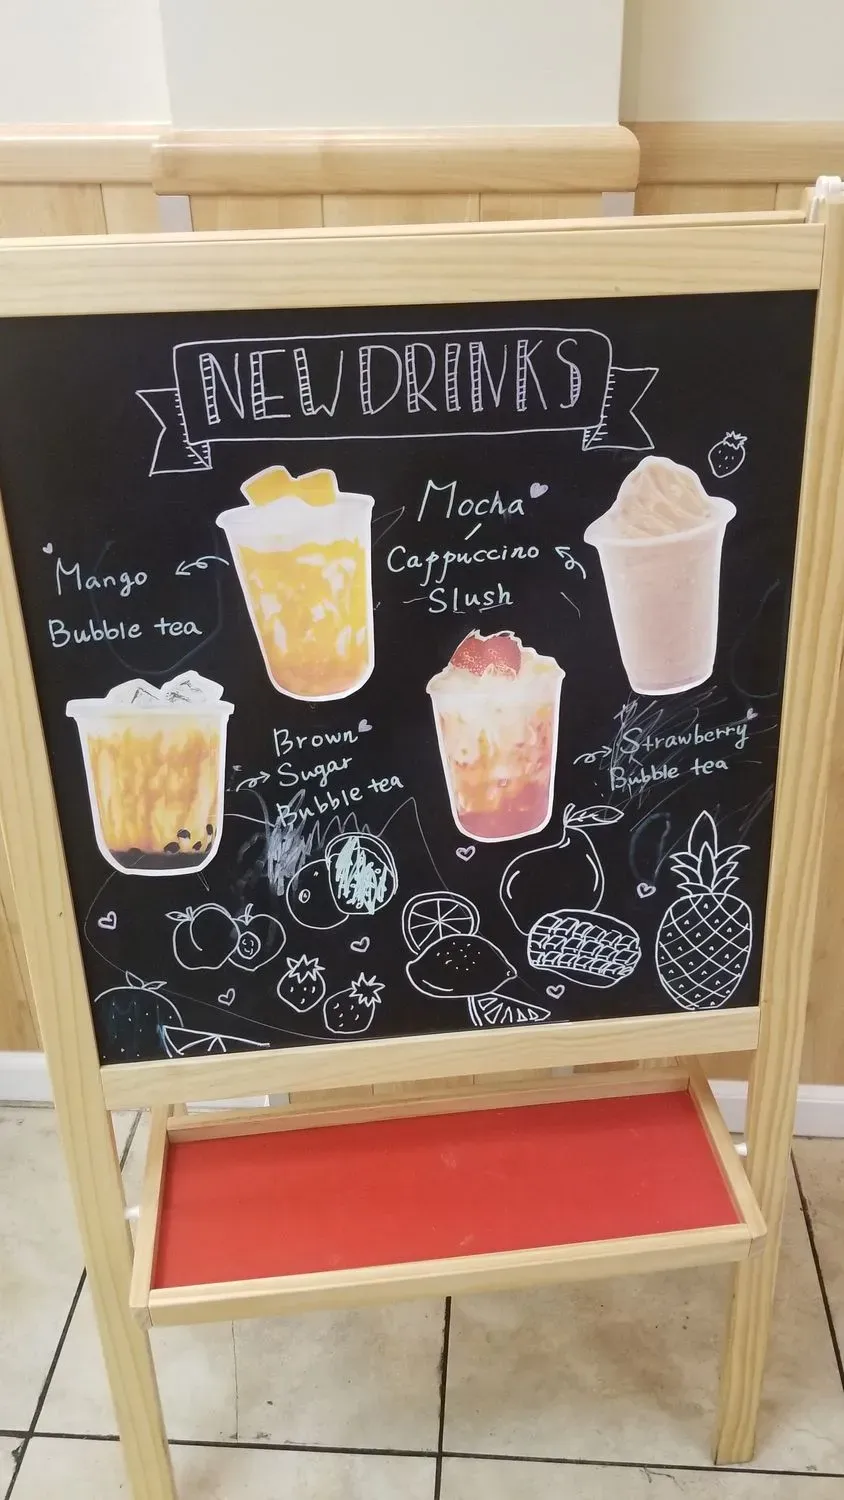 NEW DRINKS
Mango
Bubble tea
Mocha
/
Cappuccino
Slush
Brown
Sugar
Bubble tea
Strawberry
Bubble tea